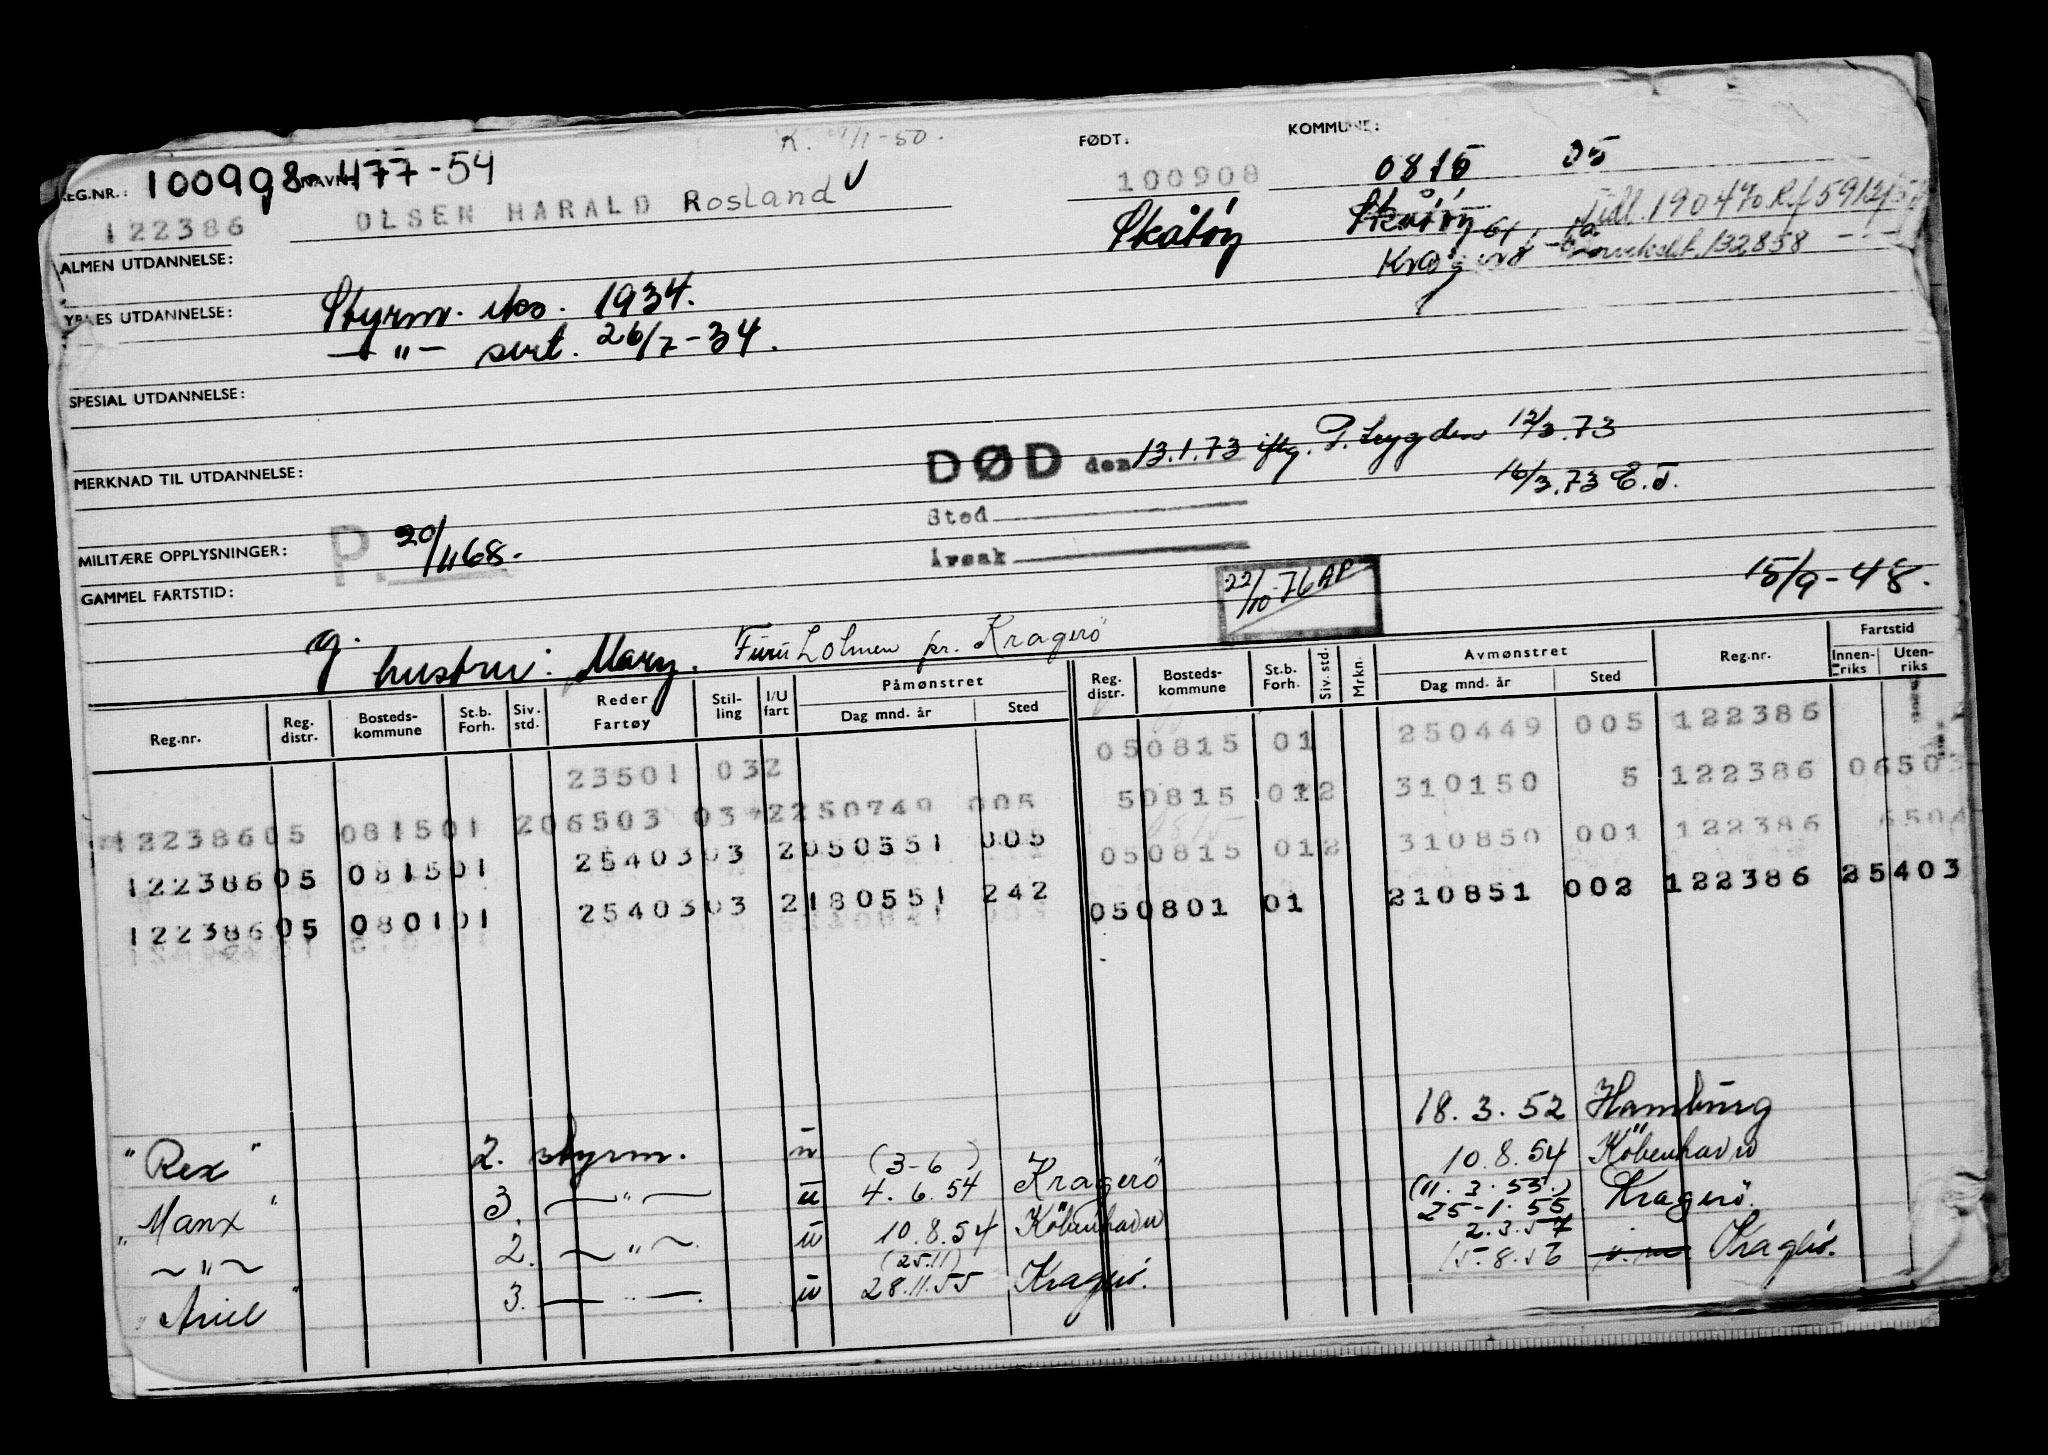 K. 9/1-50.
FØDT:
KOMMUNE:
REG.NR.: 100998 NAVN: 477-54
100908
0815 05
122386
OLSEN HARALD Rosland V
Skåtøy
Skåtøy
Tidl. 190470
ALMEN UTDANNELSE:
Kragerø
132858
YRKES UTDANNELSE:
Styrm. eks. 1934.
—"— sert. 26/7-34.
SPESIAL UTDANNELSE:
MERKNAD TIL UTDANNELSE:
DØD den 13.1.73 iflg. P. trygden 12/3.73
16/3.73 E.T.
Sted
MILITÆRE OPPLYSNINGER:
P. 20/1168.
Årsak
22/10-76 AP
15/9-48.
GAMMEL FARTSTID:
g. hustru: Mary. Furuholmen pr. Kragerö
Reg.nr.
Reg. distr.
Bosteds-kommune
St.b. Forh.
Siv. std.
Reder Fartøy
Stil-ling
I/U fart
Påmønstret
Dag mnd. år
Sted
Reg. distr.
Bosteds-kommune
St.b. Forh.
Siv. std.
Mrkn.
Avmønstret
Dag mnd. år
Sted
Reg.nr.
Fartstid
Innen-riks
Uten-riks
23501 032 050815 01 250449 005 122386
12238605 081501 206503 03 2250749 005 50815 012 310150 5 122386 06503
12238605 081501 2540303 2050551 005 050815 012 310850 001 122386 6504
12238605 080101 2540303 2180551 242 050801 01 210851 002 122386 25403
"Rex" 2. styrm. u 18.3.52 Hamburg
"Manx" 3. —"— u (3-6) 4.6.54 Kragerö 10.8.54 Köbenhavn
—"— 2. —"— u 10.8.54 Köbenhavn (11.3.55.) 25-1.55 Kragerö.
"Ariel" 3. —"— u (25.11) 28.11.55 Kragerö. 2.3.57 15.8.56 Kragerö.